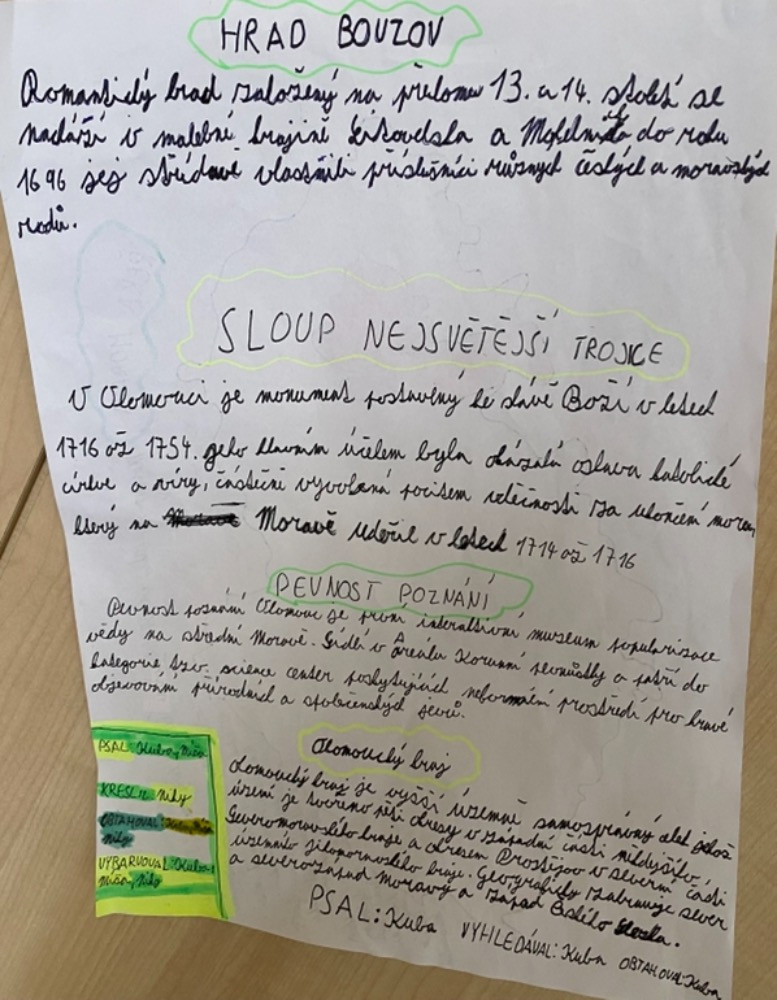 HRAD BOUZOV
Romantický hrad založený na přelomu 13. a 14. století se
nachází v malebné krajině Litovelska a Mohelnicka do roku
1696 jej střídavě vlastnili příslušníci různých českých a moravských
rodů.
SLOUP NEJSVĚTĚJŠÍ TROJICE
V Olomouci je monument postavený ke slávě Boží v letech
1716 až 1754. jeho hlavním účelem byla okázalá oslava katolické
církve a víry, částečně vyvolaná pocitem vděčnosti za ukončení moru,
který na Moravě udeřil v letech 1714 až 1716
PEVNOST POZNÁNÍ
Pevnost poznání Olomouc je první interaktivní museum popularizace
vědy na střední Moravě. Sídlí v Areálu Korunní pevnůstky a patří do
kategorie tzv. science center poskytujících neformální prostředí pro hravé
objevování přírodních a společenských jevů.
Olomoucký kraj
Olomoucký kraj je vyšší územně samosprávný celek jehož
území je tvořeno pěti okresy v západní části někdejšího
Severomoravského kraje a okresem Prostějov v severní části
územního jihomoravského kraje. Geograficky zabírá sever
a severozápad Moravy a západ Českého Slezska.
PSAL: Kuba, Míša
KRESLIL: Niky
OBTAHOVAL: Kuba, Míša
Niky
VYBARVOVAL: Kuba,
Míša, Niky
PSAL: Kuba VYHLEDÁVAL: Kuba OBTAHOVAL: Kuba